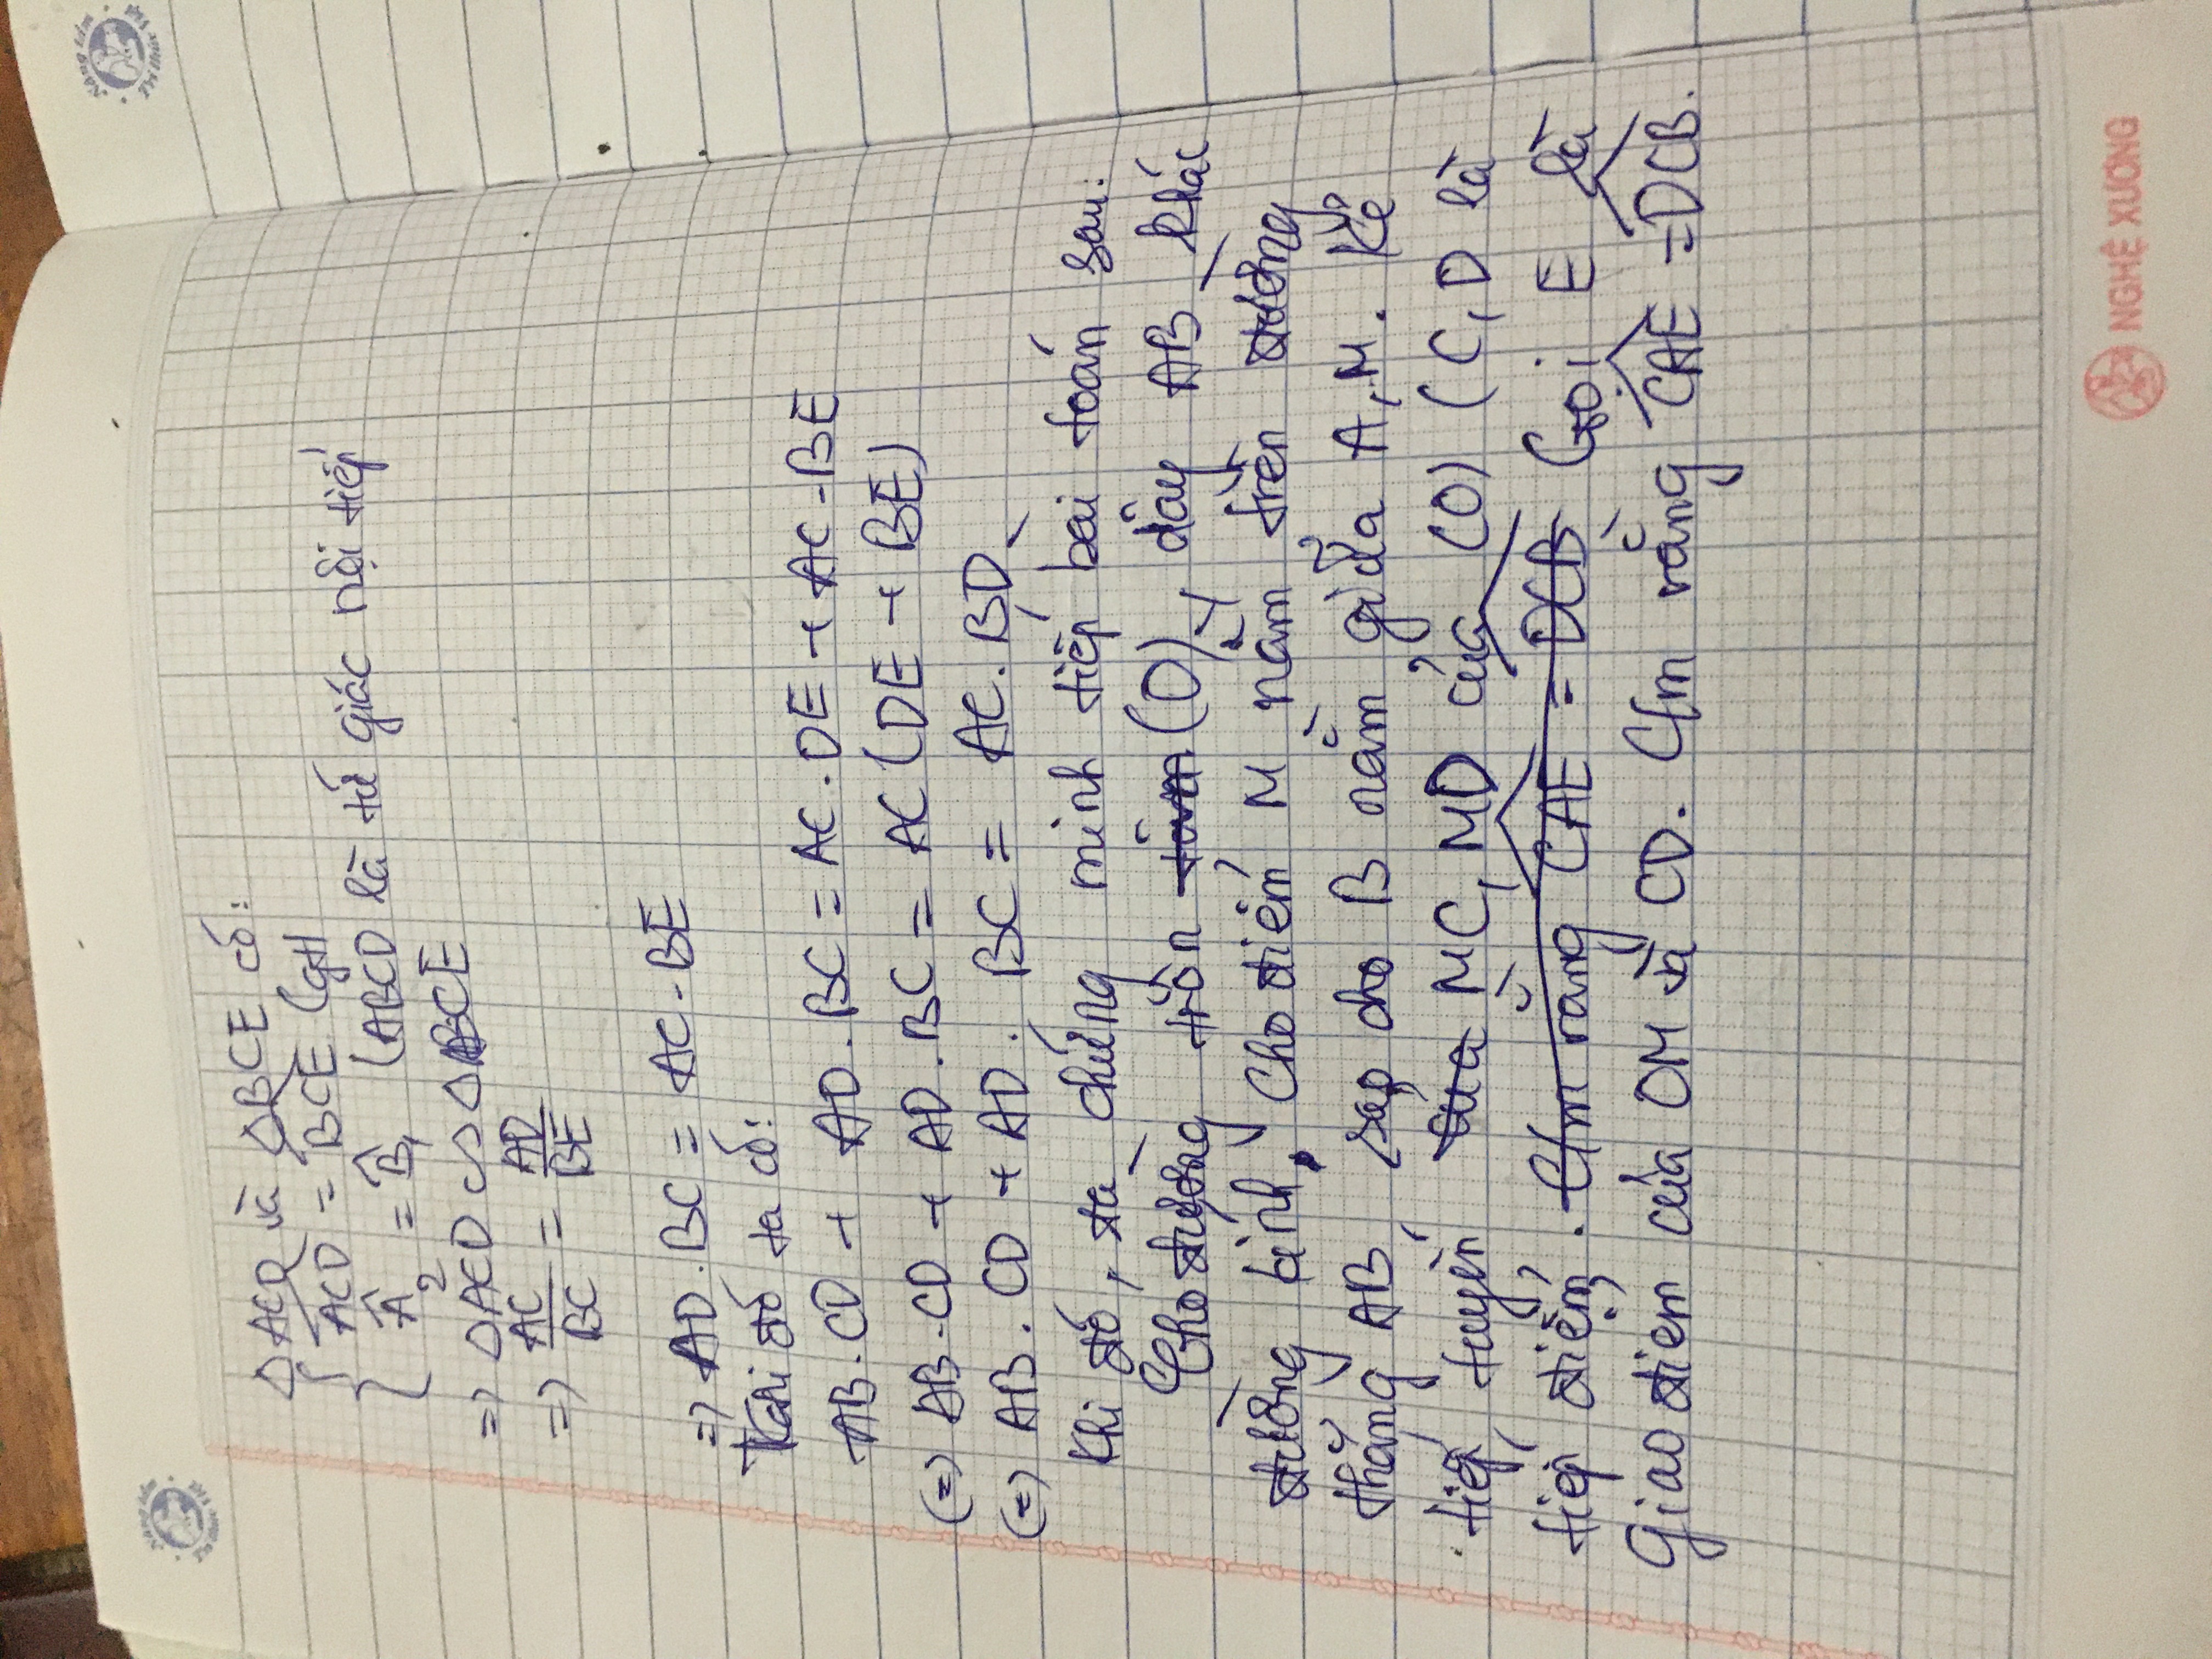 Nâng tầm
Trí thức Việt
Nâng tầm
Trí thức Việt
△ACD và △BCE có:
{ ACD = BCE (gt)
Â₂ = B̂₁ (ABCD là tứ giác nội tiếp
=> △ACD ∽ △BCE
=> AC/BC = AD/BE
=> AD.BC = AC.BE
Khi đó ta có:
AB.CD + AD.BC = AC.DE + AC.BE
(=) AB.CD + AD.BC = AC(DE + BE)
(=) AB.CD + AD.BC = AC.BD.
Khi đó, ta chứng minh tiếp bài toán sau:
Cho đường tròn tâm (O), dây AB khác
đường kính. Cho điểm M nằm trên đường
thẳng AB, sao cho B nằm giữa A, M. Kẻ
tiếp tuyến của MC, MD của (O) (C, D là
tiếp điểm. C/m rằng CAE = DCB Gọi E là
Giao điểm của OM và CD. C/m rằng CAE = DCB.
NGHỆ XƯƠNG